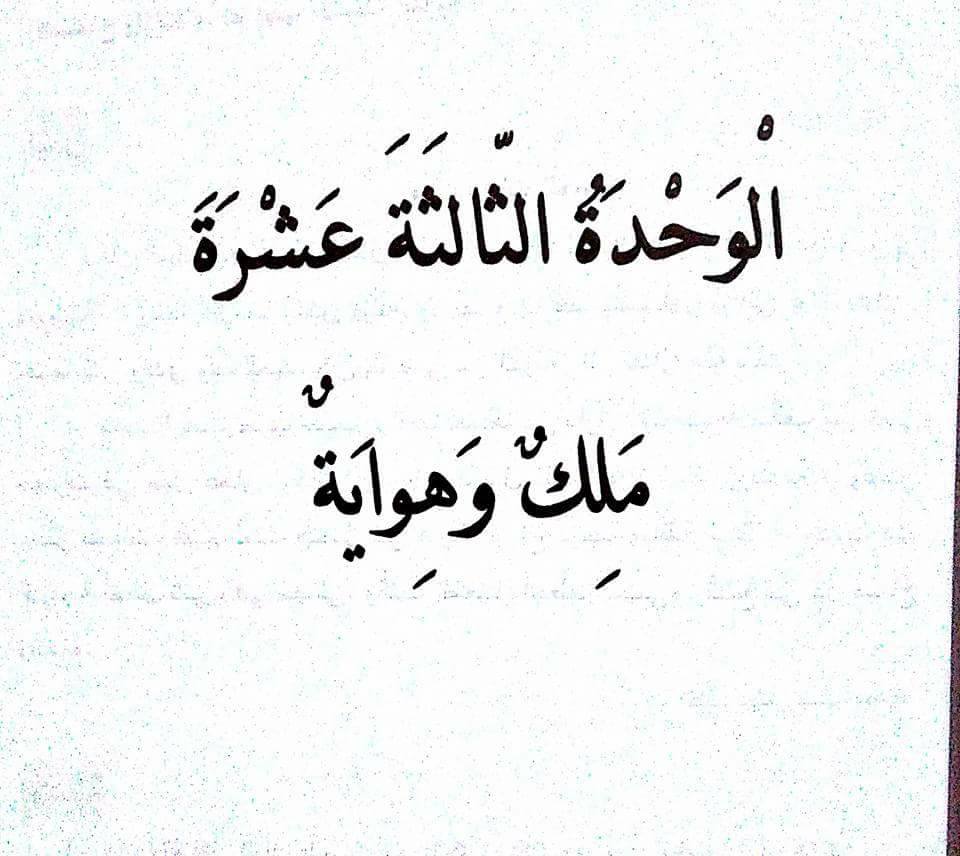 الْوَحْدَةُ الثَّالثَةَ عَشْرَةَ
مَلِكٌ وَهِوايَةٌ